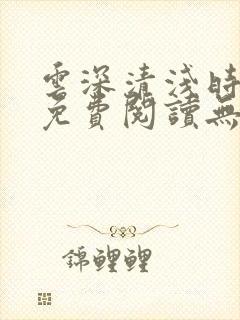 雲深清淺時
免費閱讀無
錦鯉鯉